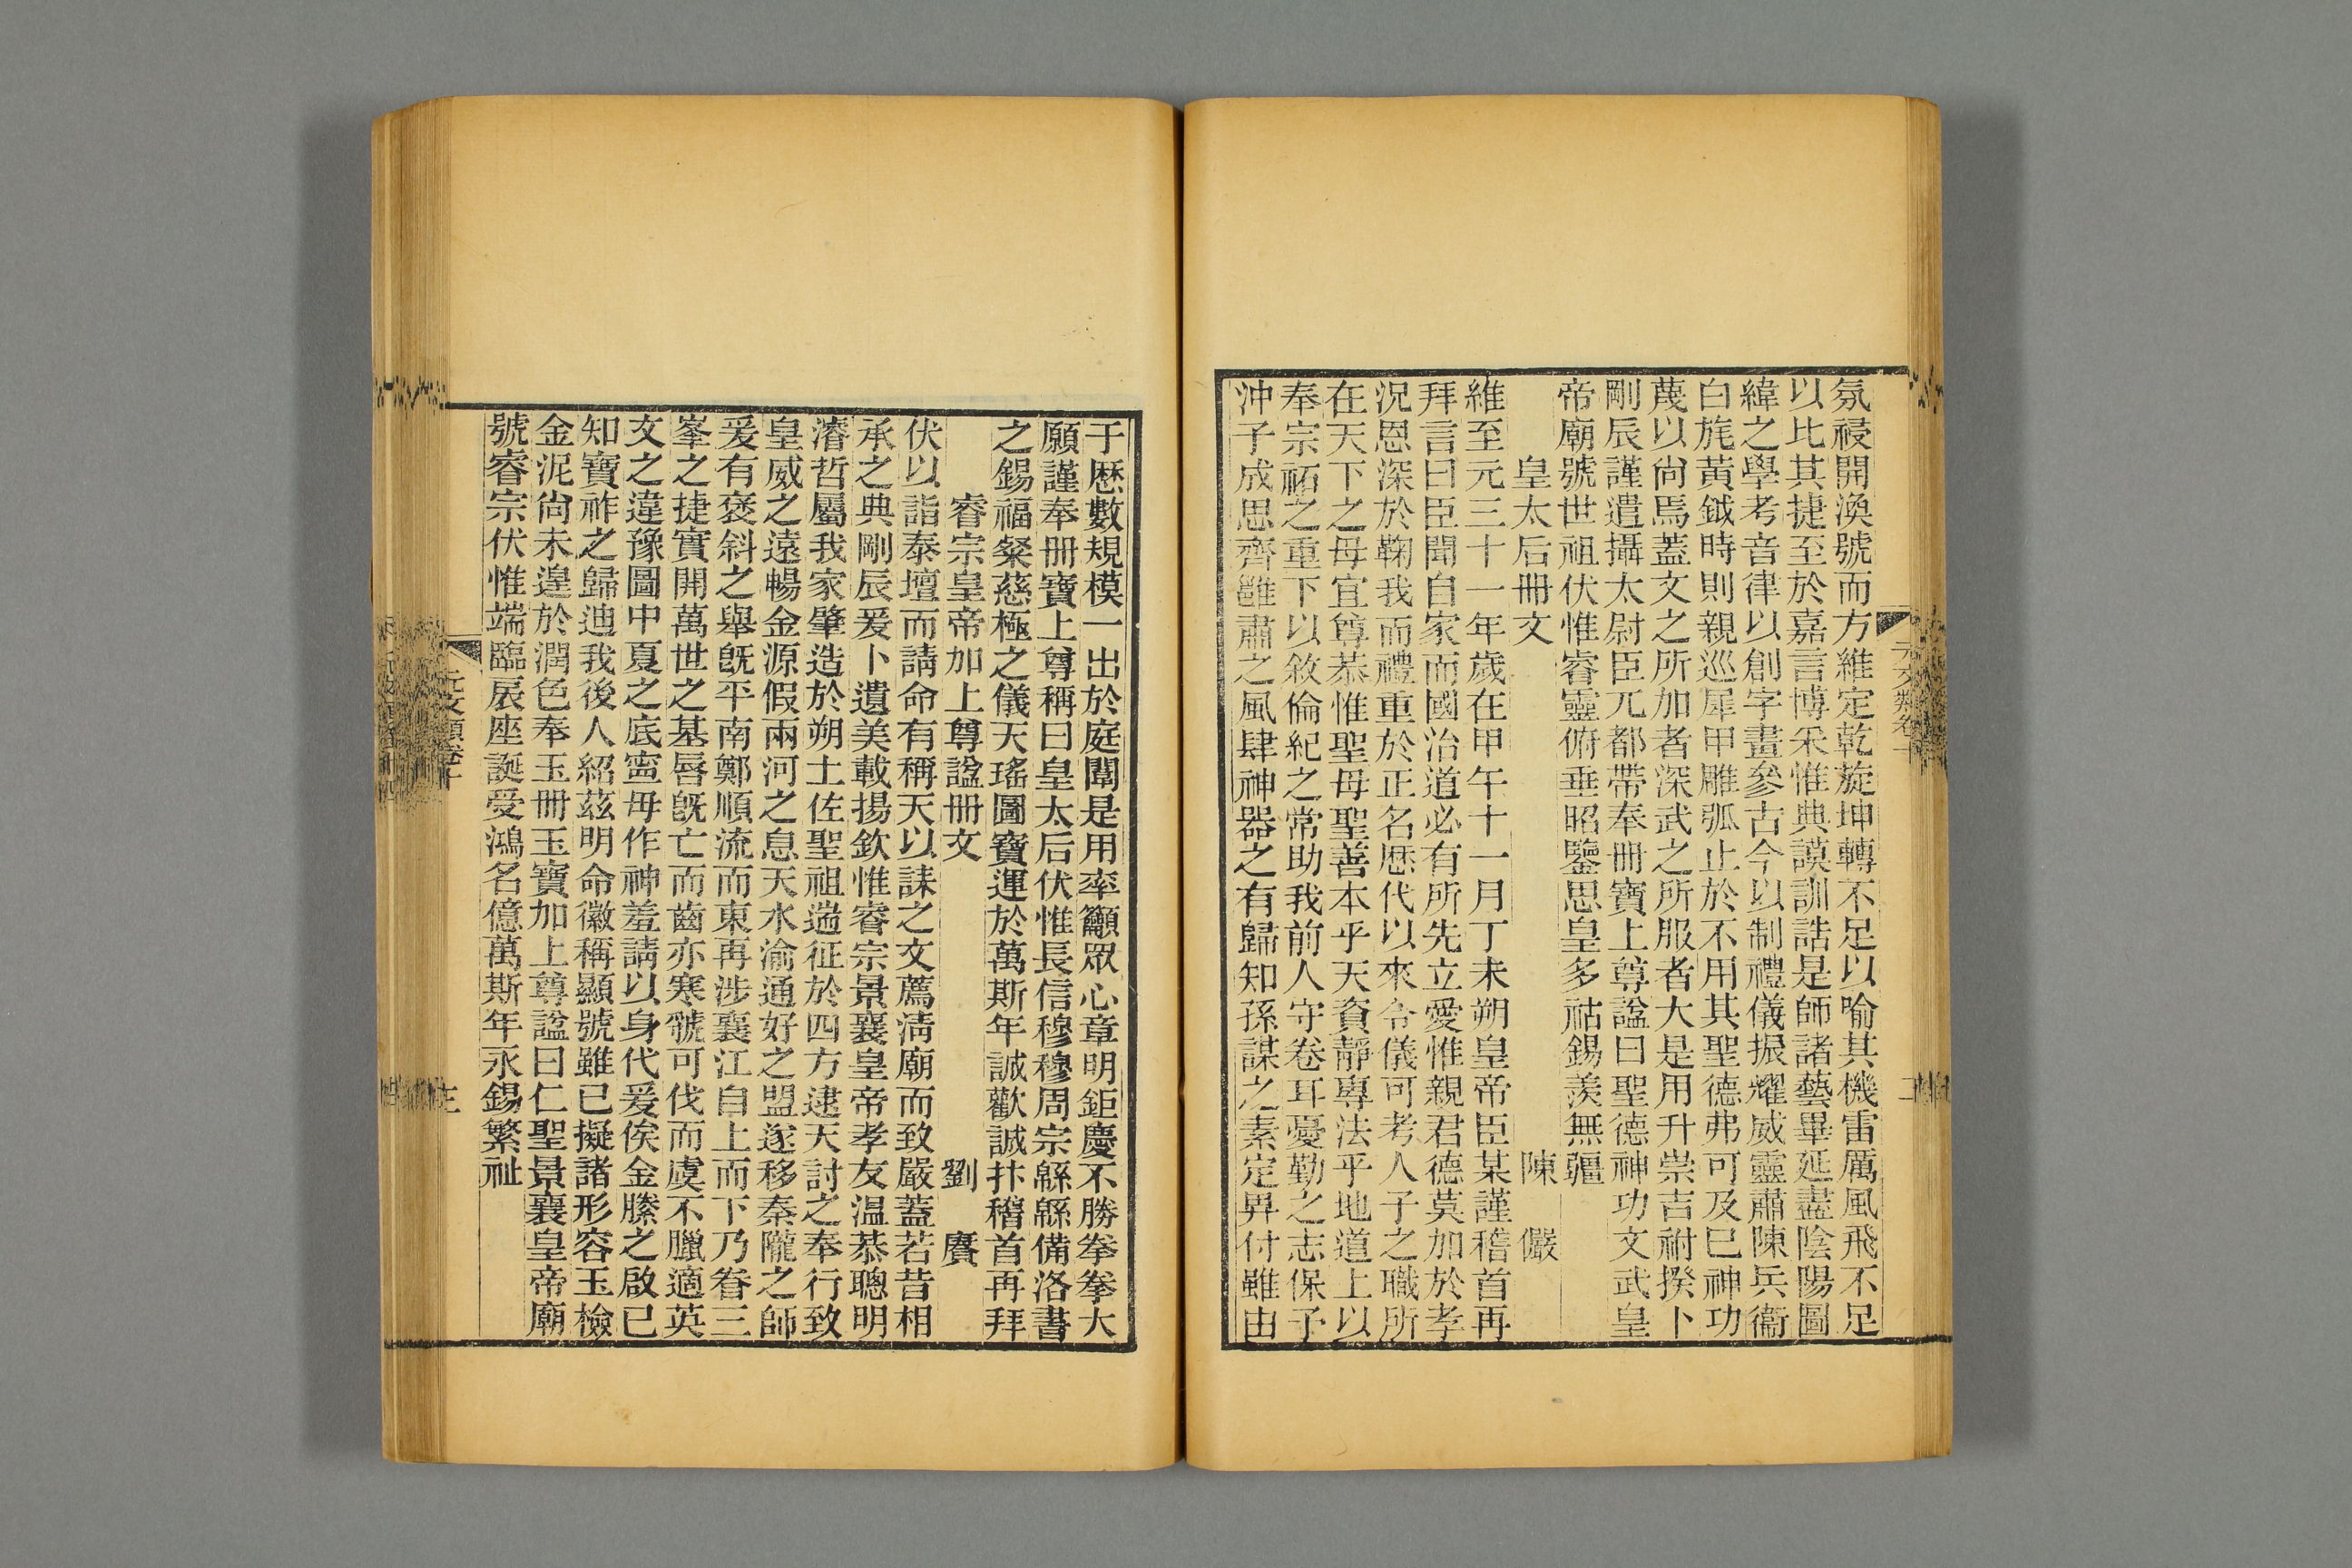 氛祲開渙號而方維定乾旋坤轉不足以喻其機雷厲風飛不足
以比其捷至於嘉言博采惟典謨訓誥是師諸藝畢延盡陰陽圖
緯之學考音律以創字畫參古今以制禮儀振耀威靈肅陳兵衞
白旄黃鉞時則親巡犀甲雕弧止於不用其聖德弗可及巳神功
蔑以尙焉蓋文之所加者深武之所服者大是用升崇吉祔揆卜
剛辰謹遣攝太尉臣兀都帶奉冊寶上尊諡曰聖德神功文武皇
帝廟號世祖伏惟睿靈俯垂昭鑒思皇多祜錫羨無疆
皇太后冊文 陳 儼
維至元三十一年歲在甲午十一月丁未朔皇帝臣某謹稽首再
拜言曰臣聞自家而國治道必有所先立愛惟親君德莫加於孝
況恩深於鞠我而禮重於正名歷代以來令儀可考人子之職所
在天下之母宜尊恭惟聖母聖善本乎天資靜專法乎地道上以
奉宗祏之重下以敘倫紀之常助我前人守卷耳憂勤之志保予
沖子成思齊雝肅之風肆神器之有歸知孫謀之素定畀付雖由
元文類卷十
二
于歷數規模一出於庭闈是用率籲眾心章明鉅慶不勝拳拳大
願謹奉冊寶上尊稱曰皇太后伏惟長信穆穆周宗緜緜備洛書
之錫福粲慈極之儀天瑤圖寶運於萬斯年誠歡誠抃稽首再拜
睿宗皇帝加上尊諡冊文 劉 賡
伏以詣泰壇而請命有稱天以誄之文薦淸廟而致嚴蓋若昔相
承之典剛辰爰卜遺美載揚欽惟睿宗景襄皇帝孝友温恭聰明
濬哲屬我家肇造於朔土佐聖祖遄征於四方逮天討之奉行致
皇威之遠暢金源假兩河之息天水渝通好之盟遂移秦隴之師
爰有褒斜之舉旣平南鄭順流而東再涉襄江自上而下乃眷三
峯之捷實開萬世之基唇旣亡而齒亦寒虢可伐而虞不臘適英
文之違豫圖中夏之底寧毋作神羞請以身代爰俟金縢之啟已
知寶祚之歸迪我後人紹茲明命徽稱顯號雖已擬諸形容玉檢
金泥尙未遑於潤色奉玉冊玉寶加上尊諡曰仁聖景襄皇帝廟
號睿宗伏惟端臨扆座誕受鴻名億萬斯年永錫繁祉
元文類卷十
三